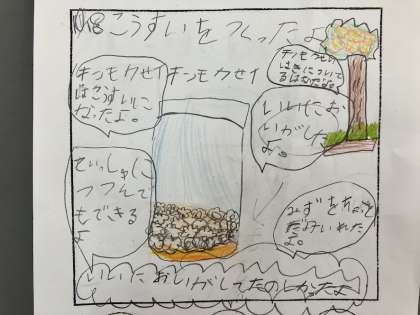 こうすいをつくったよ
キンモクセイ
キンモクセイ
はこうすいに
なったよ。
キンモクセイ
はきについて
るはなだよ。
いいにお
いがした
よ。
てぃっしゅに
つつんで
もできる
よ
みずをちょっと
だけいれた
よ。
いいにおいがしてたのしかったよ